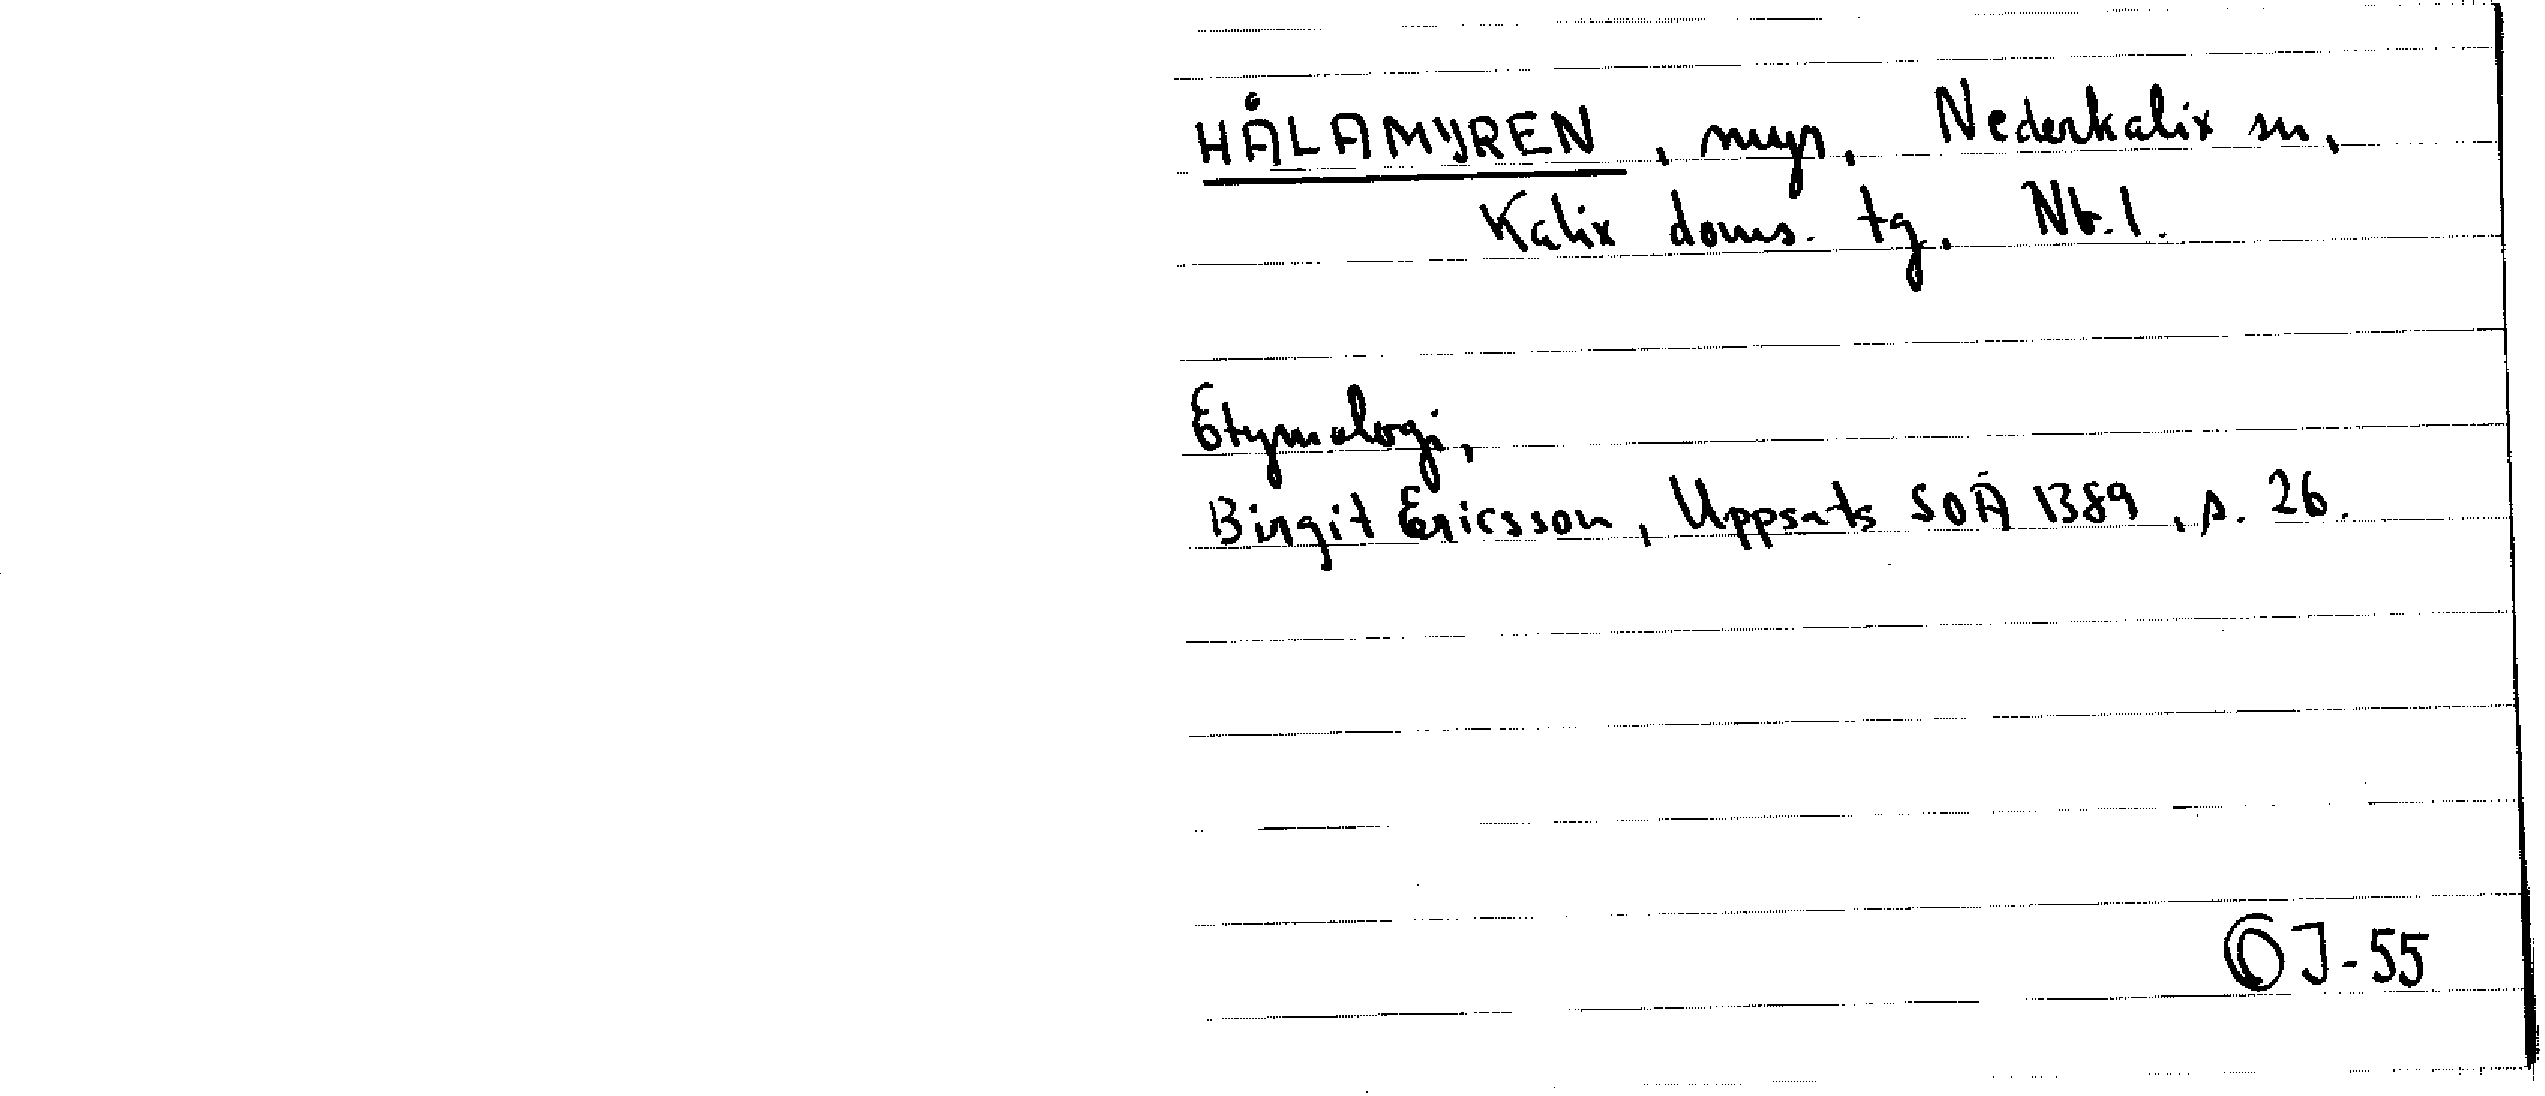 HÅLAMYREN, myr, Nederkalix sn,
Kalix doms. tg. Nb. l.
Etymologi,
Birgit Ericsson, Uppsats SOÄ 1389, s. 26.
OJ-55